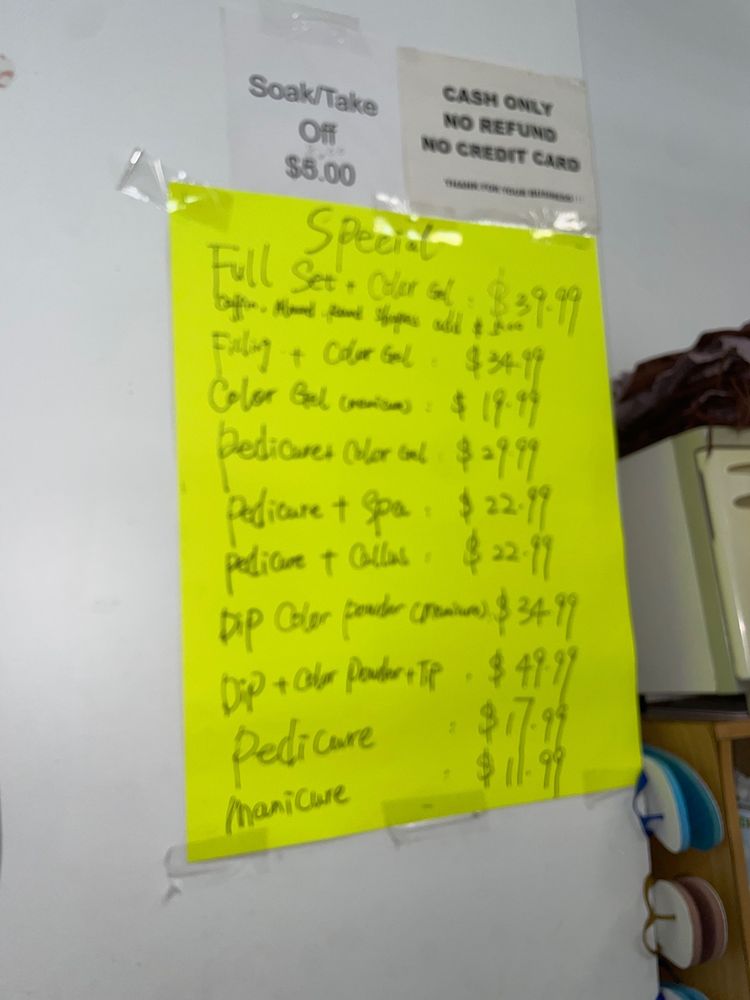 Soak/Take
Off
$5.00
CASH ONLY
NO REFUND
NO CREDIT CARD
THANK FOR YOUR BUSINESS!!!
Special
Full Set + Color Gel : $39.99
Shapes add $
Filling + Color Gel : $34.99
Color Gel (premium) : $19.99
Pedicure + Color Gel : $29.99
Pedicure + Spa : $22.99
Pedicure + Callus : $22.99
Dip Color Powder (premium) : $34.99
Dip + Color Powder + Tip : $49.99
Pedicure : $17.99
Manicure : $11.99